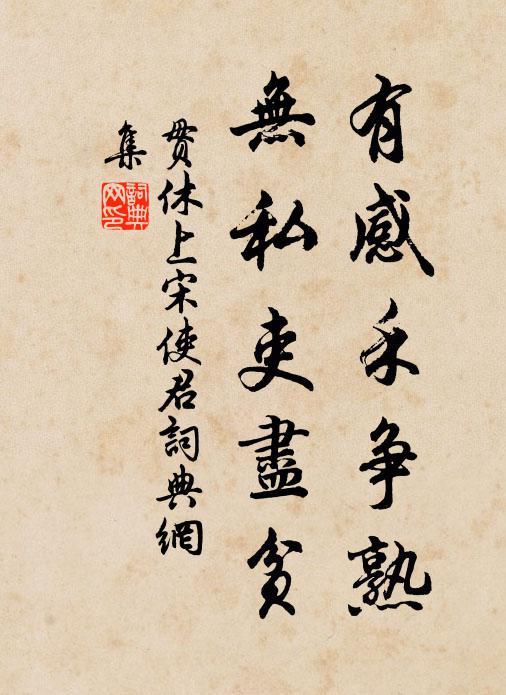 有感禾争熟
無私吏盡貧
贯休上宋使君詞典網
集
詞典
网印